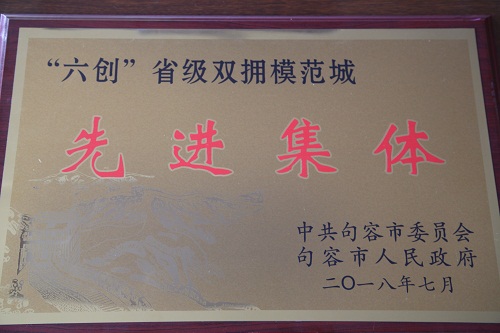 “六创”省级双拥模范城
先进集体
中共句容市委员会
句容市人民政府
二〇一八年七月